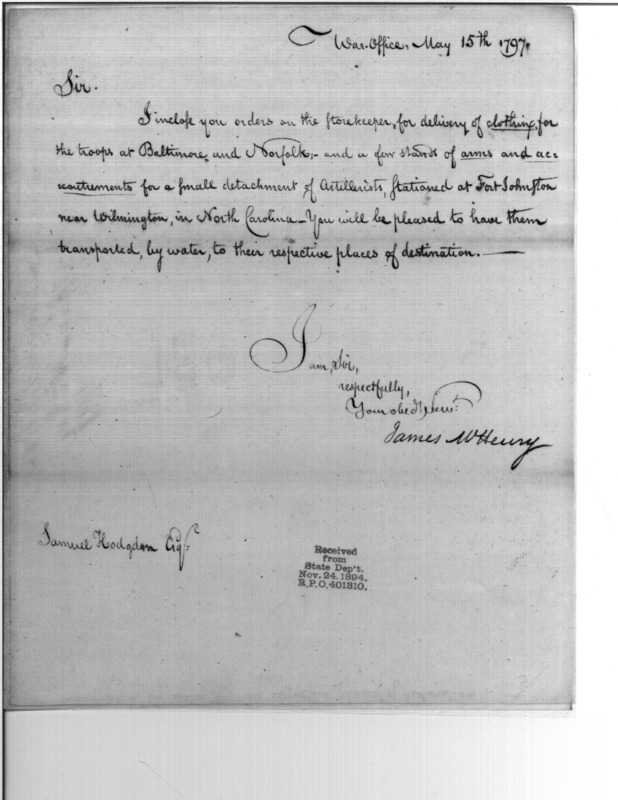 War-Office, May 15th 1797.
Sir.
I inclose you orders on the storekeeper, for delivery of clothing, for
the troops at Baltimore, and Norfolk;- and a few stands of arms and ac=
=coutrements for a small detachment of Artillerists, stationed at Fort Johnston
near Wilmington, in North Carolina_You will be pleased to have them
transported, by water, to their respective places of destination.—
I am, Sir,
respectfully,
Your obed.t Serv.t
James McHenry
Samuel Hodgdon Esq.r
Received
from
State Dep't.
Nov. 24. 1894.
R.P.O. 401310.